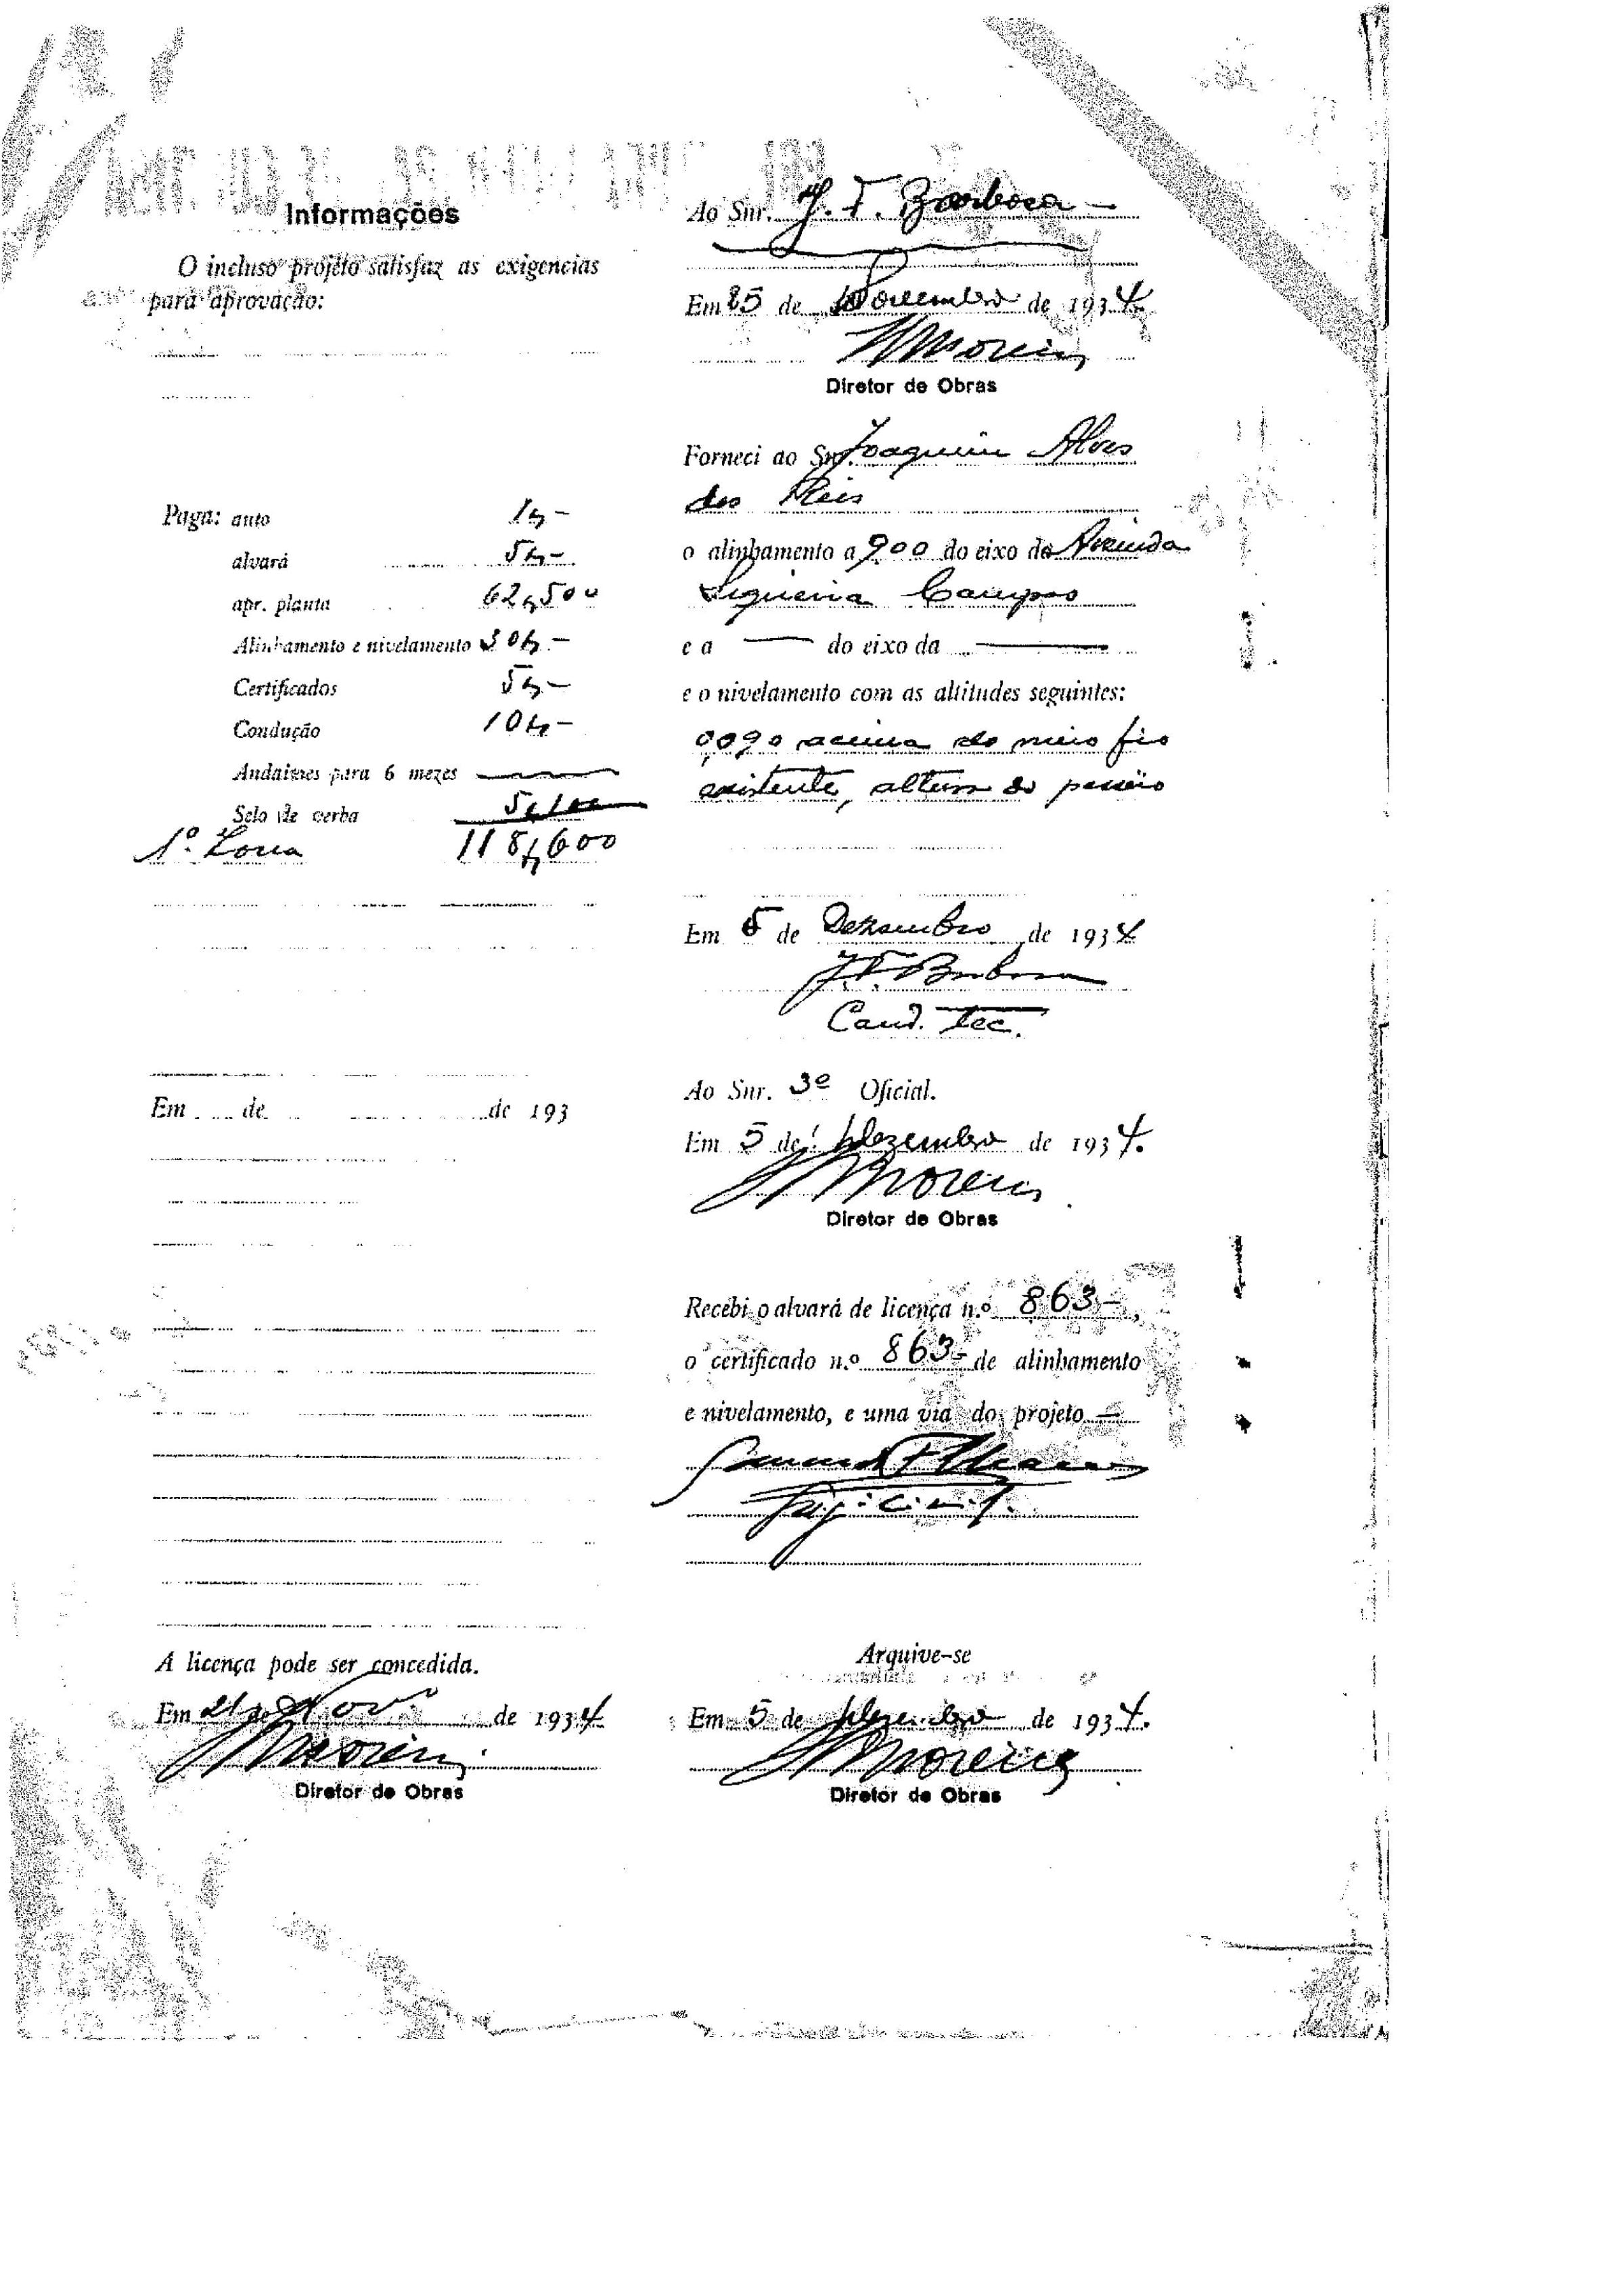 Informações
O incluso projéto satisfaz as exigencias
para aprovação:
Paga: auto 1$-
alvará 5$-
apr. planta 62$500
Alinhamento e nivelamento 30$-
Certificados 5$-
Condução 10$-
Andaimes para 6 mezes
Selo de verba 5$100
1ª Zona 118$600
Em de de 193
A licença pode ser concedida.
Em de Nov de 1934
Moreira
Diretor de Obras
Ao Snr. J. F. Barbosa
Em 25 de Novembro de 1934
Moreira
Diretor de Obras
Forneci ao Snr. Joaquim Alves
dos Reis
o alinhamento a 9.00 do eixo da Avenida
Siqueira Campos
e a do eixo da
e o nivelamento com as altitudes seguintes:
0,090 acima do meio fio
existente, altura do passeio
Em 5 de Dezembro de 1934
J.F. Barbosa
Cand. Tec.
Ao Snr. 3º Oficial.
Em 5 de Dezembro de 1934.
Moreira
Diretor de Obras
Recebi o alvará de licença n.º 863-,
o certificado n.º 863- de alinhamento
e nivelamento, e uma via do projeto
Arquive-se
Em 5 de Dezembro de 1934.
Moreira
Diretor de Obras